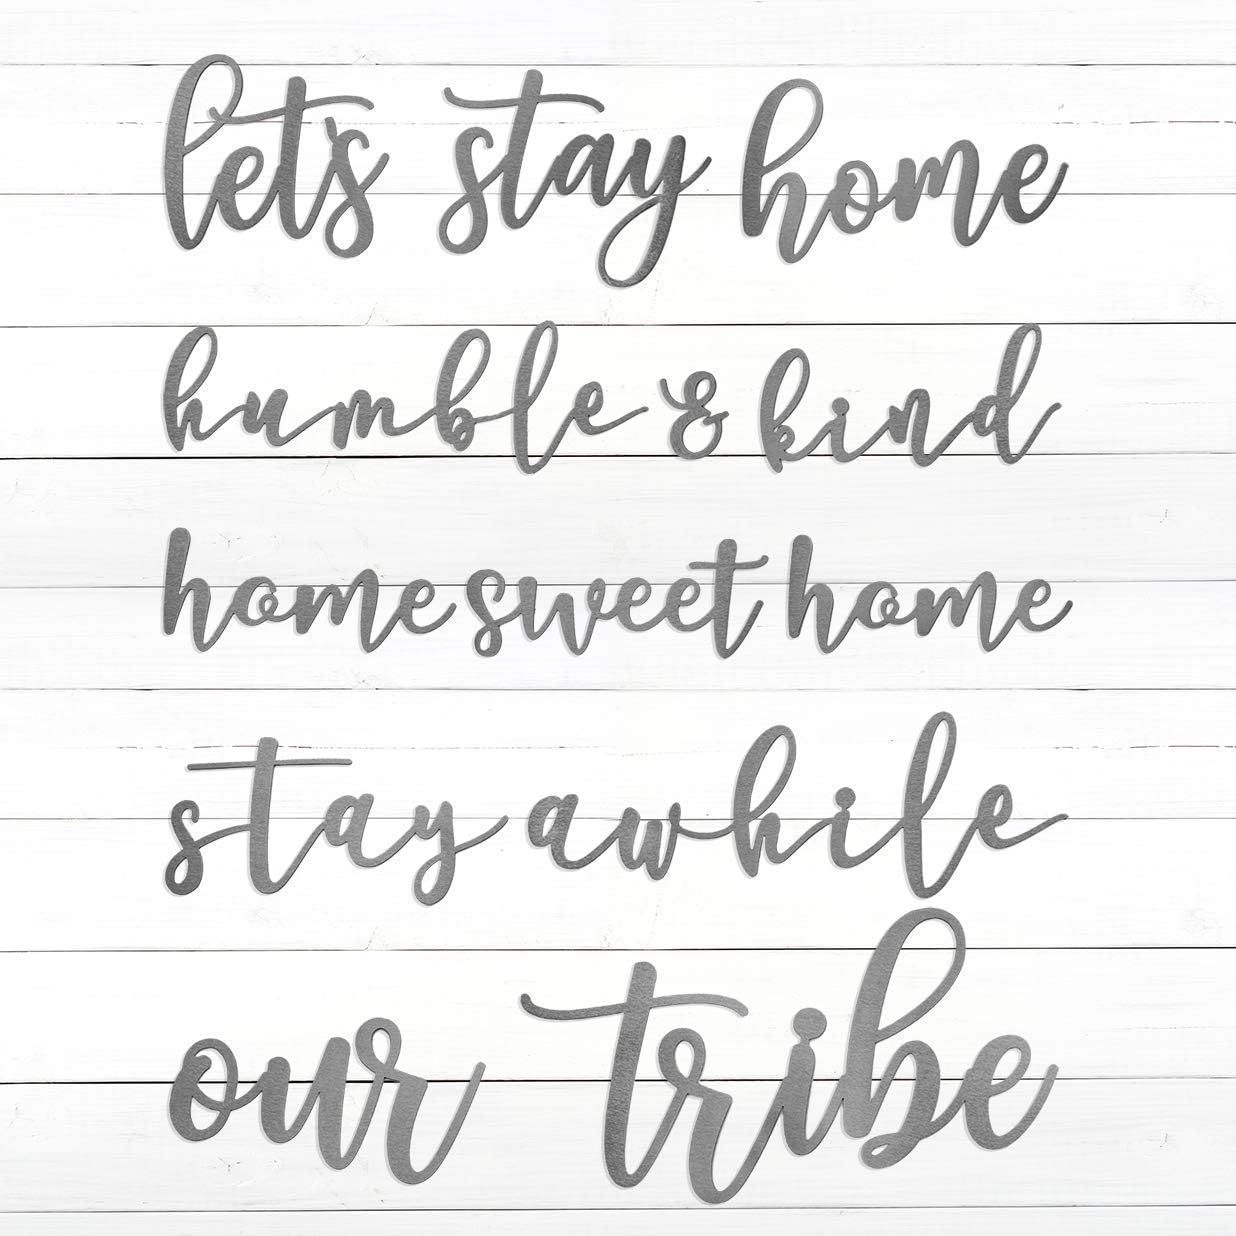 let's stay home
humble & kind
home sweet home
stay awhile
our tribe